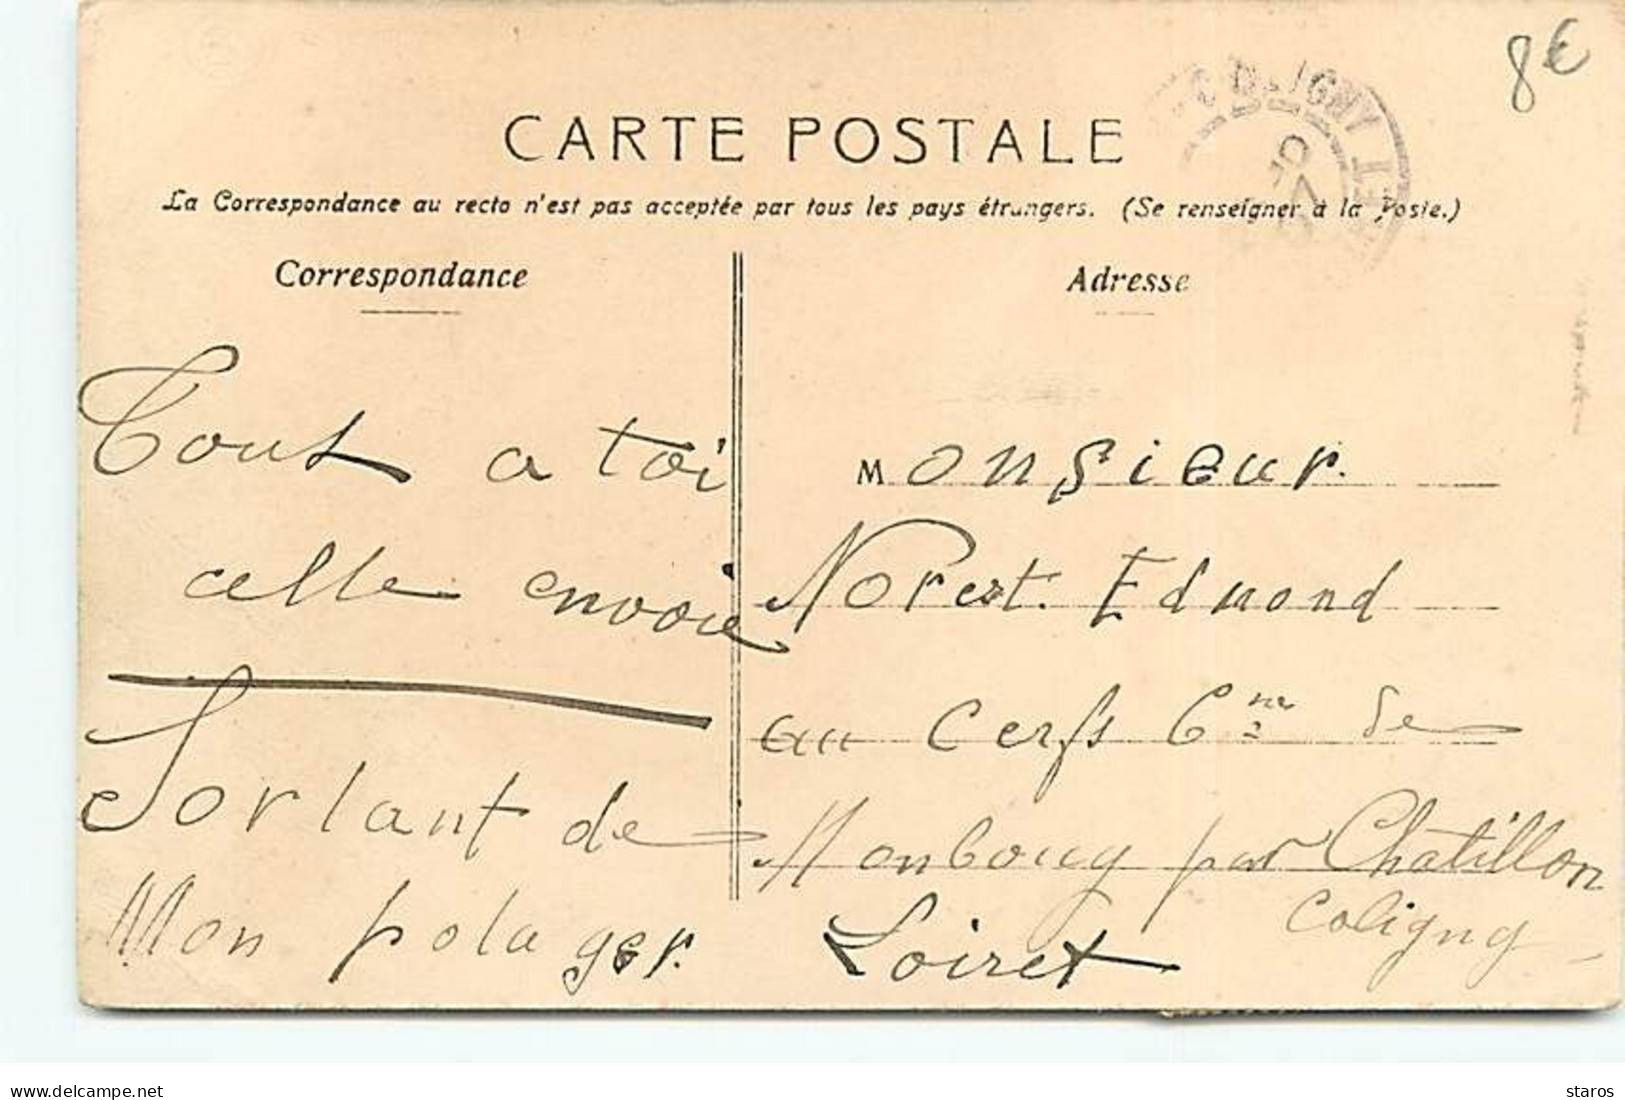 8€
COLIGNY
CARTE POSTALE
La Correspondance au recto n'est pas acceptée par tous les pays étrangers. (Se renseigner à la Poste.)
Correspondance
Tout a toi
celle envoie
Sorlant de
Mon polager.
Adresse
Monsieur.
Norest. Edmond
au Cerfs Cne de
Monboug par Chatillon
Coligny
Loiret
delcampe.net
staros